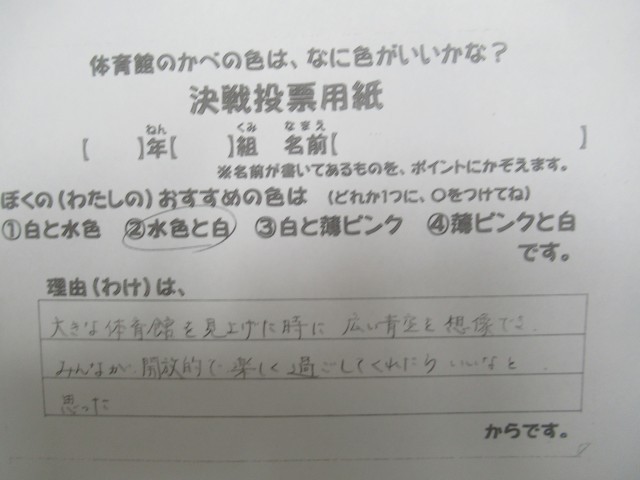 体育館のかべの色は、なに色がいいかな？
決戦投票用紙
【　　】年【　　】組　名前【　　　　　　】
※名前が書いてあるものを、ポイントにかぞえます。
ぼくの（わたしの）おすすめの色は　（どれか1つに、○をつけてね）
①白と水色　②水色と白　③白と薄ピンク　④薄ピンクと白
です。
理由（わけ）は、
大きな体育館を見上げた時に 広い青空を想像でき、
みんなが、開放的で楽しく過ごしてくれたらいいなと
思った
からです。